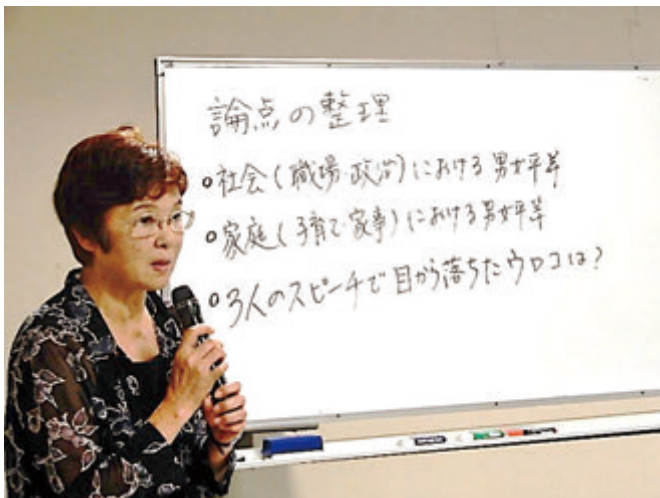 論点の整理
○社会(職場・政治)における男女平等
○家庭(子育て・家事)における男女平等
○3人のスピーチで目から落ちたウロコは?